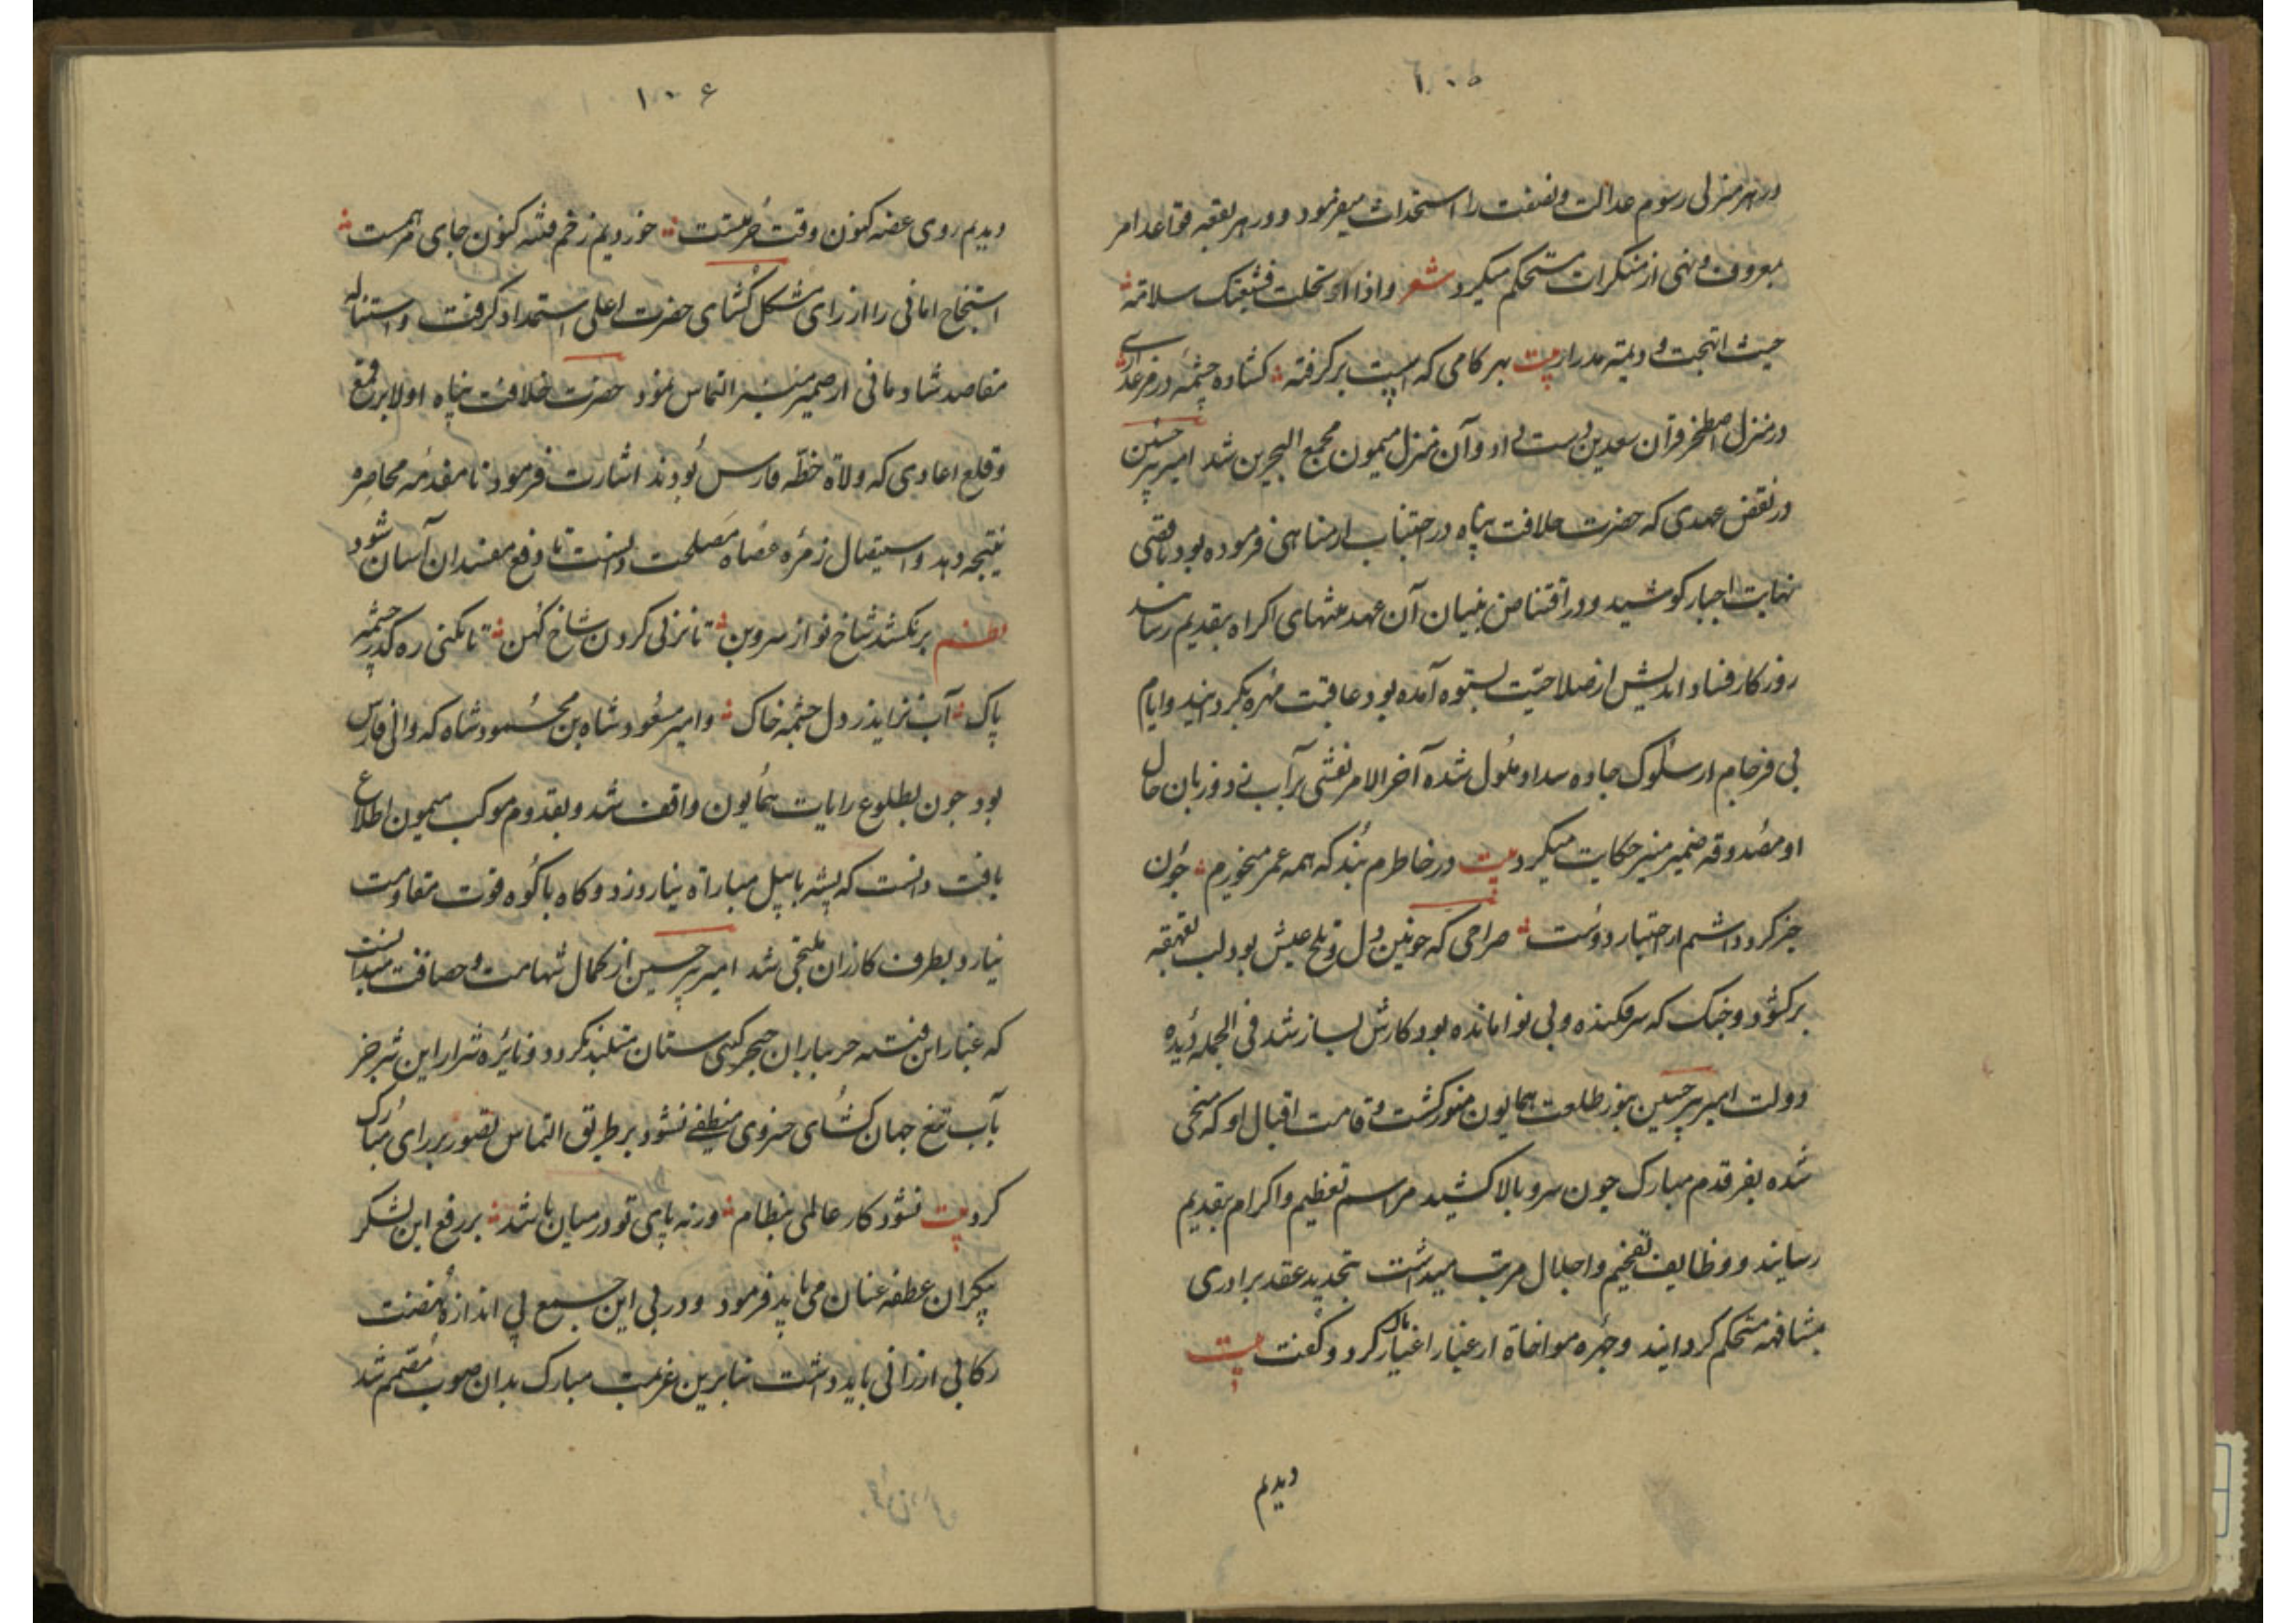 ١٠٥
در هر منزلی رسوم عدالت و نصفت را استحداث میفرمود و در هر بقعه قواعد امر
بمعروف و نهی از منکرات مستحکم میکرد شعر واذا سلامة
حیث دیمة مدرار بیت بهر کامی که اسپت برگرفته کشاده چشمهٔ در مرغزاری
در منزل اصطخر قران سعدین دست داد و آن منزل میمون مجمع البحرین شد امیر پیر حسین
در نقض عهدی که حضرت خلافت پناه در اجتناب از مناهی فرموده بود باقصی
نهایت اجبار کوشید و در اقتناص بنیان آن عهد منتهای اکراه بتقدیم رسانید
روزکار فساد اندیش از صلاحیت بستوه آمده بود عاقبت مهره بکردانید و ایام
بی فرجام از سلوک جاده سداد ملول شده آخر الامر نقشی بر آب زد و زبان حال
او مصدوقه ضمیر منیر حکایت میکرد بیت در خاطرم نبد که همه عمر میخورم جون
جبر کرد داشتم از اختیار دوست صراحی که خونین دل و تلخ عیش بود لب بقهقهه
برکشود و جنک که سرفکنده و بی نوا مانده بود کارش بساز شد فی الجمله دیده
دولت امیر پیر حسین بنور طلعت همایون منور کشت و قامت اقبال او که منحنی
شده بفر قدم مبارک جون سرو بالا کشید مراسم تعظیم و اکرام بتقدیم
رسانید و وظایف تفخیم و اجلال مرتب میداشت تجدید عقد برادری
بمشافهه مستحکم کردانید و جهره مواخاة از غبار اغیار پاک کرد و کفت بیت
دیدیم
١٠٦
دیدیم روی غصه کنون وقت خرمیست خوردیم زخم فتنه کنون جای مرهمست
استنجاح امانی را از رای مشکل کشای حضرت اعلی استمداد کرفت و استنباله
مقاصد شادمانی از ضمیر منیر التماس نمود حضرت خلافت پناه اولا بر قمع
و قلع اعادی که ولاة خطّه فارس بودند اشارت فرمود تا مقدمه محاصره
نتیجه دهد و استیصال زمره عصاه مصلحت دانست تا دفع مفسدان آسان شود
نظم برنکشد شاخ نو از سروبن تا نزنی کردن شاخ کهن تا نکنی ره کذر چشمه
پاک آب نزاید ز دل چشمه خاک و امیر مسعود شاه بن محمود شاه که والی فارس
بود جون بطلوع رایات همایون واقف شد و بقدوم موکب میمون اطلاع
یافت دانست که پشه با پیل مباراة نیاروزد و کاه با کوه قوت مقاومت
نیارد بطرف کازران ملتجی شد امیر پیر حسین از کمال شهامت و حصافت میدانست
که غبار این فتنه جز بباران خنجر کیتی ستان متلبد نکردد و نایره شرار این شر جز
بآب تیغ جهان کشای خسروی منطفی نشود بر طریق التماس تصویر برای مبارک
کرد بیت نشود کار عالمی بنظام ورنه پای تو در میان باشد بر رفع این لشکر
بیکران عطفه عنان می باید فرمود و در پی این جمع بی اندازه نهضت
رکابی ارزانی باید داشت بنابرین عزیمت مبارک بدان صوب مصمم شد